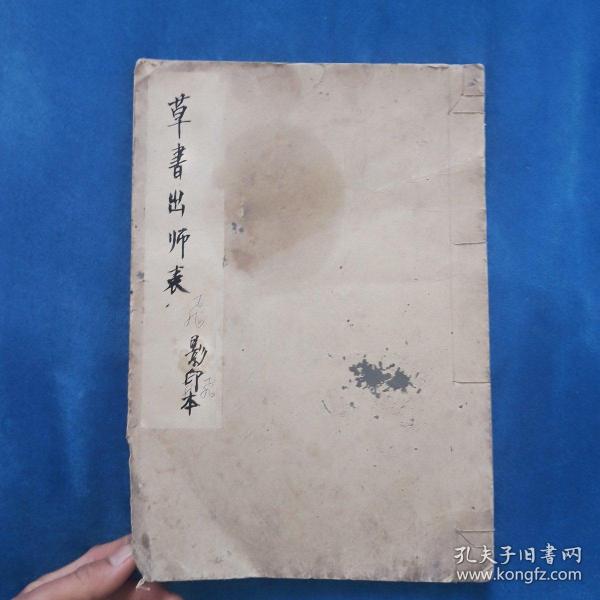 草書出师表
影印本
孔夫子旧书网
www.kongfz.com